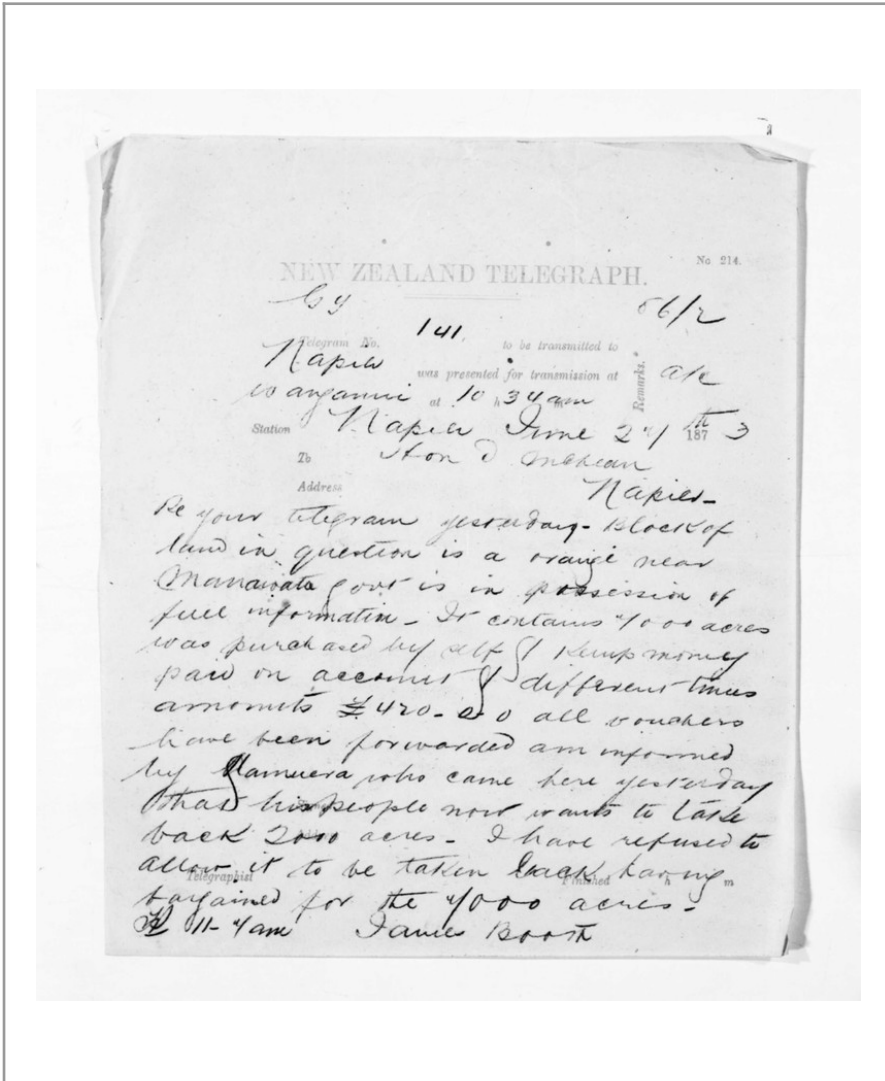 No 214.
NEW ZEALAND TELEGRAPH.
56/2
Telegram No. 141. to be transmitted to
Napier was presented for transmission at
Wanganui at 10 h 34 am
Remarks.
Station Napier June 27th 1873
To Hon D McLean
Address Napier-
Re your telegram yesterday- Block of
land in question is a orange near
Manawatu govt is in possession of
full information - It contains 7000 acres
was purchased by self & Kemp money
paid on account & different times
amounts £420-0-0 all vouchers
have been forwarded am informed
by Hamuera who came here yesterday
that his people now wants to take
back 2000 acres - I have refused to
allow it to be taken back having
Telegraphist Finished h m
bargained for the 7000 acres -
11-7am James Booth